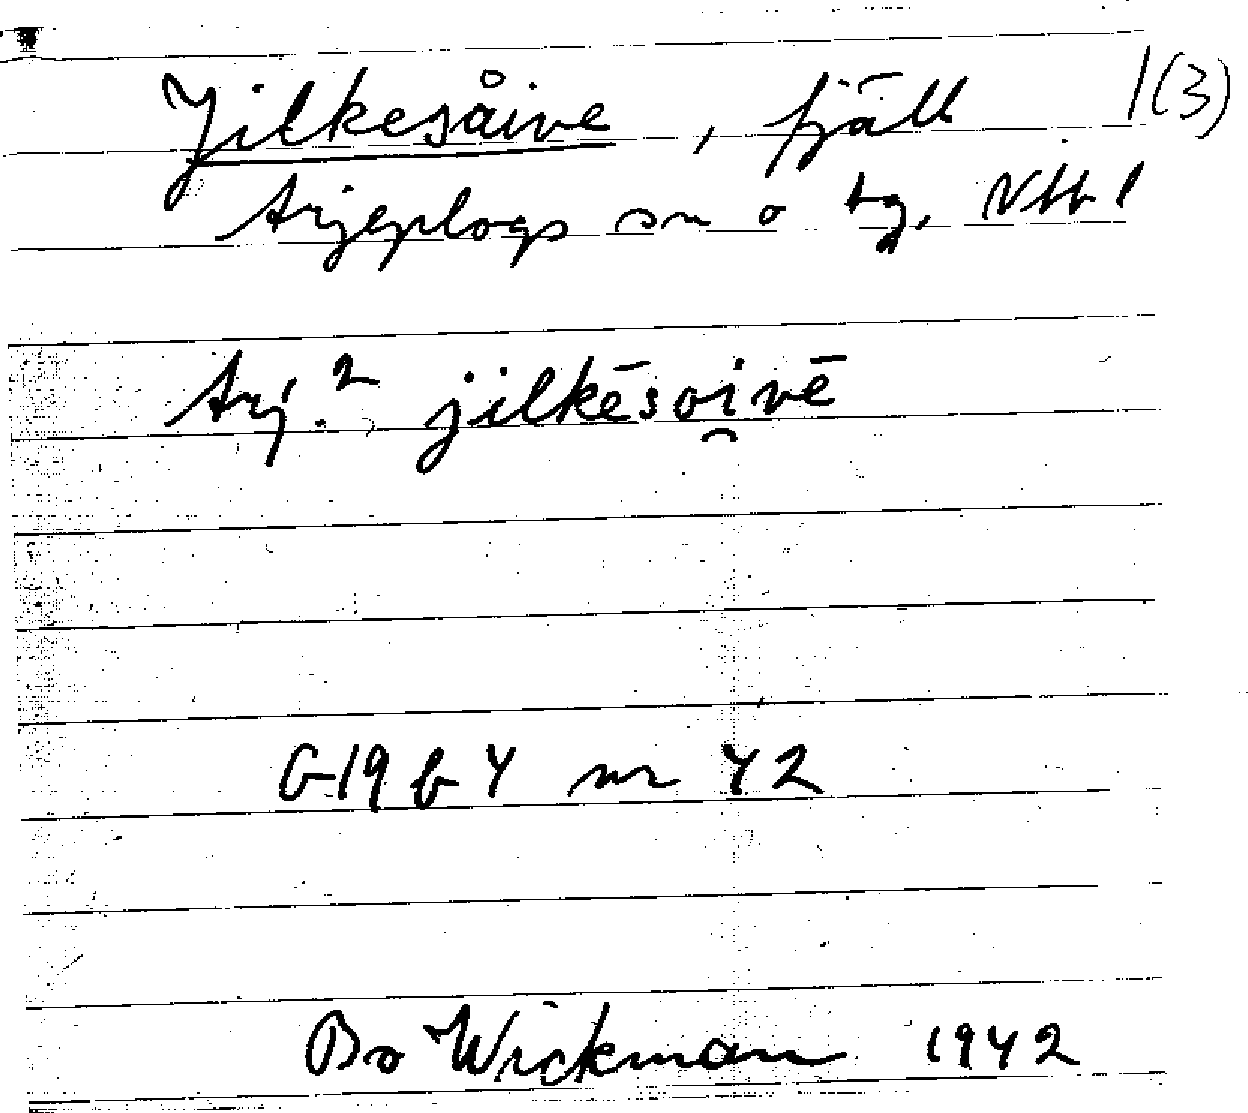 Jilkesåive, fjäll 1(3)
Arjeplogs sn o tg, Nbtl
Arj.2 jilkēsoi̯vē
G19 b 4 nr 42
Bo Wickman 1942